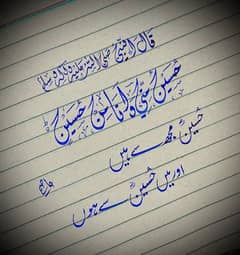 قال النبی صلی اللہ علیہ وآلہ وسلم
حسین منی وانا من حسین
حسین مجھ سے ہیں
اور میں حسین سے ہوں